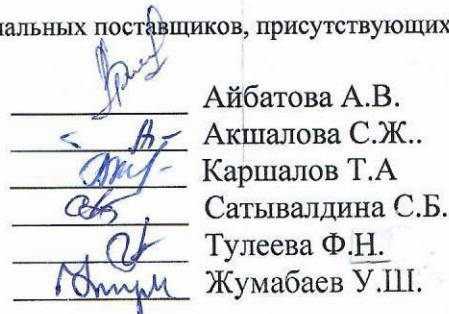 нальных поставщиков, присутствующих
Айбатова А.В.
Акшалова С.Ж..
Каршалов Т.А
Сатывалдина С.Б.
Тулеева Ф.Н.
Жумабаев У.Ш.